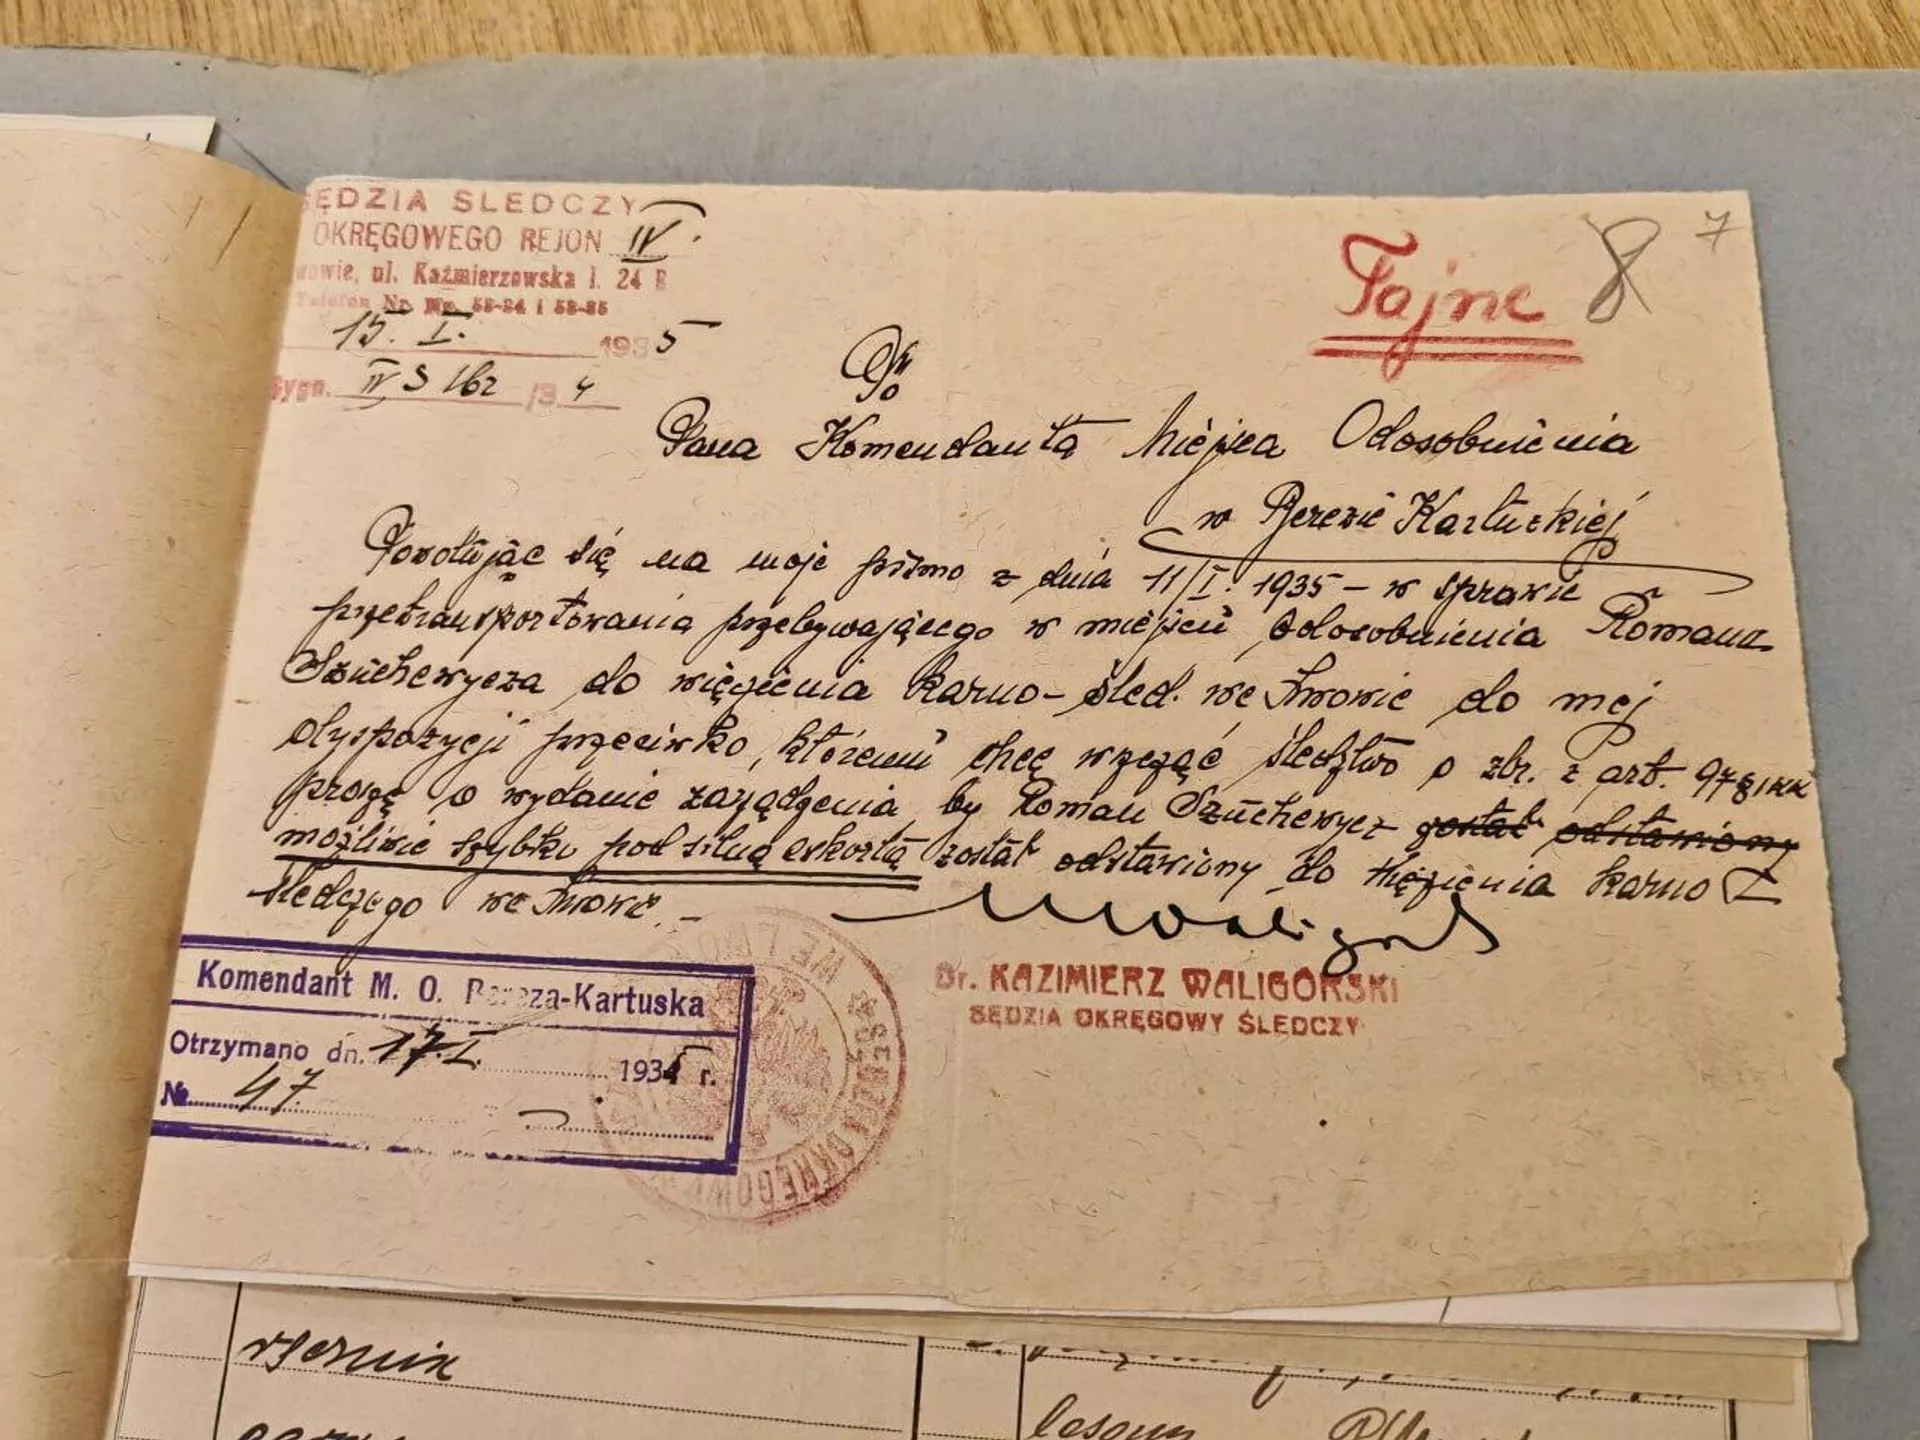 SĘDZIA ŚLEDCZY
OKRĘGOWEGO REJON IV.
wowie, ul. Kaźmierzowska l. 24 B
Telefon Nr. 58-84 i 58-85
15. I. 1935
Sygn. IV S 162 /34
Tajne
8 7
Do
Pana Komendanta Miejsca Odosobnienia
w Berezie Kartuzkiej
Powołując się na moje pismo z dnia 11/I. 1935 – w sprawie
przetransportowania przebywającego w miejscu Odosobnienia Romana
Szuchewycza do więzienia karno-śled. we Lwowie do mej
dyspozycji przeciwko, któremu chcę wszcząć śledztwo o zbr. z art. 97 § 1 KK
proszę o wydanie zarządzenia by Roman Szuchewycz został odstawiony
możliwie szybko pod silną eskortą został odstawiony do więzienia karno
śledczego we Lwowie. –
Dr. KAZIMIERZ WALIGÓRSKI
SĘDZIA OKRĘGOWY ŚLEDCZY
Komendant M. O. Bereza-Kartuska
Otrzymano dn. 17. I. 1935 r.
№ 47
WE LWOWIE
OKRĘGOWY